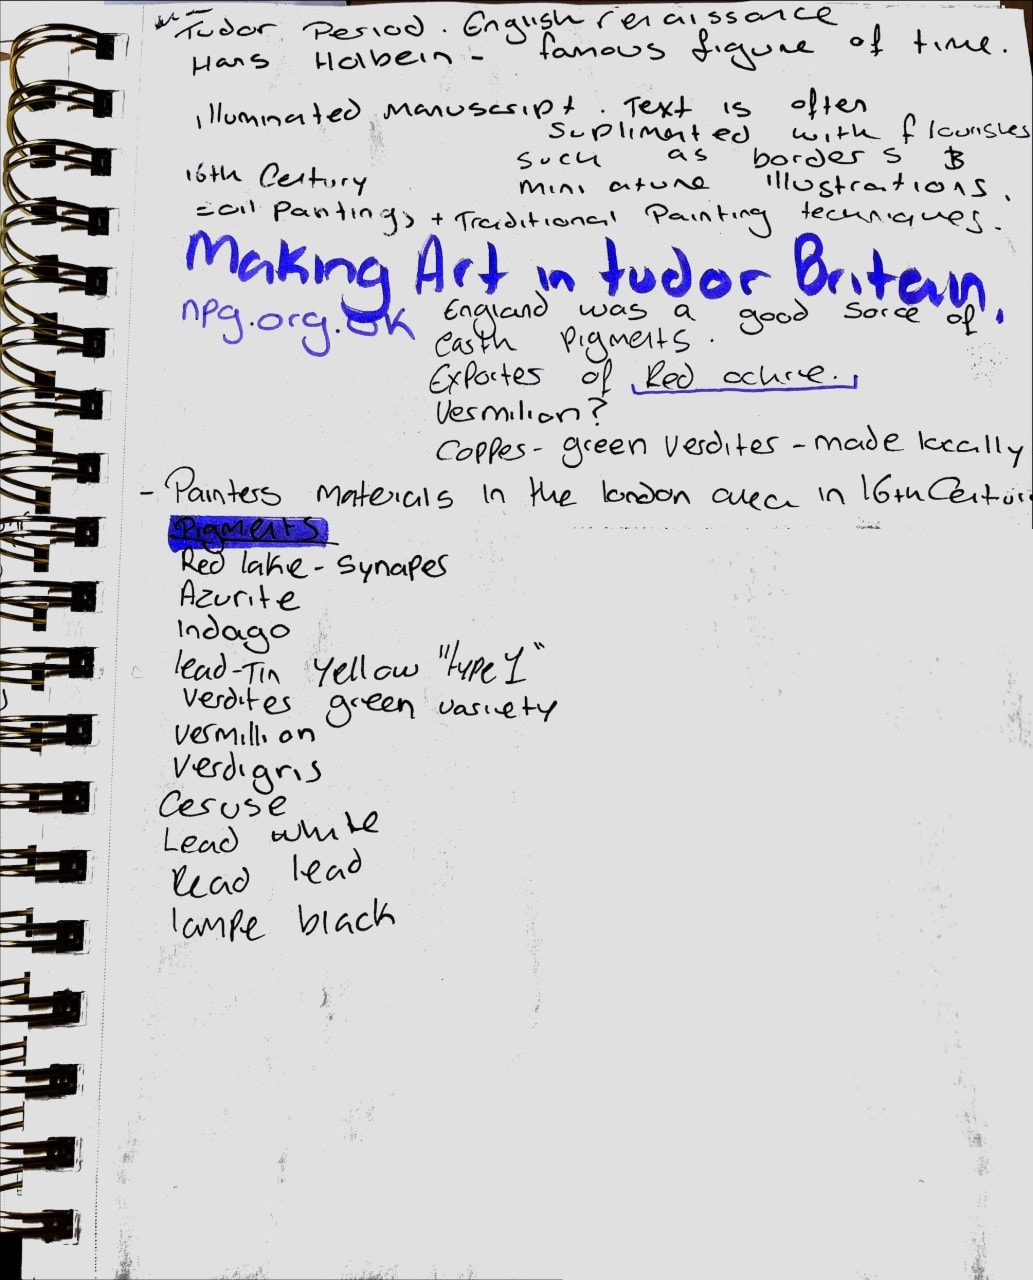 Tudor Period. English renaissance
Hans Holbein - famous figure of time.
illuminated manuscript. Text is often
suplimented with flourishes
such as borders &
miniature illustrations.
16th Century
= oil Pantings + Traditional Painting techniques.
Making Art in tudor Britain.
npg.org.uk
England was a good sorce of
earth pigments.
Exportes of Red ochre.
Vermilion?
Copper - green Verdites - made locally
- Painters materials in the london area in 16th Centur
Pigments
Red lake - Synapes
Azurite
Indago
lead-Tin yellow "type 1"
Verdites green variety
Vermillion
Verdigris
Ceruse
Lead white
Read lead
lampe black